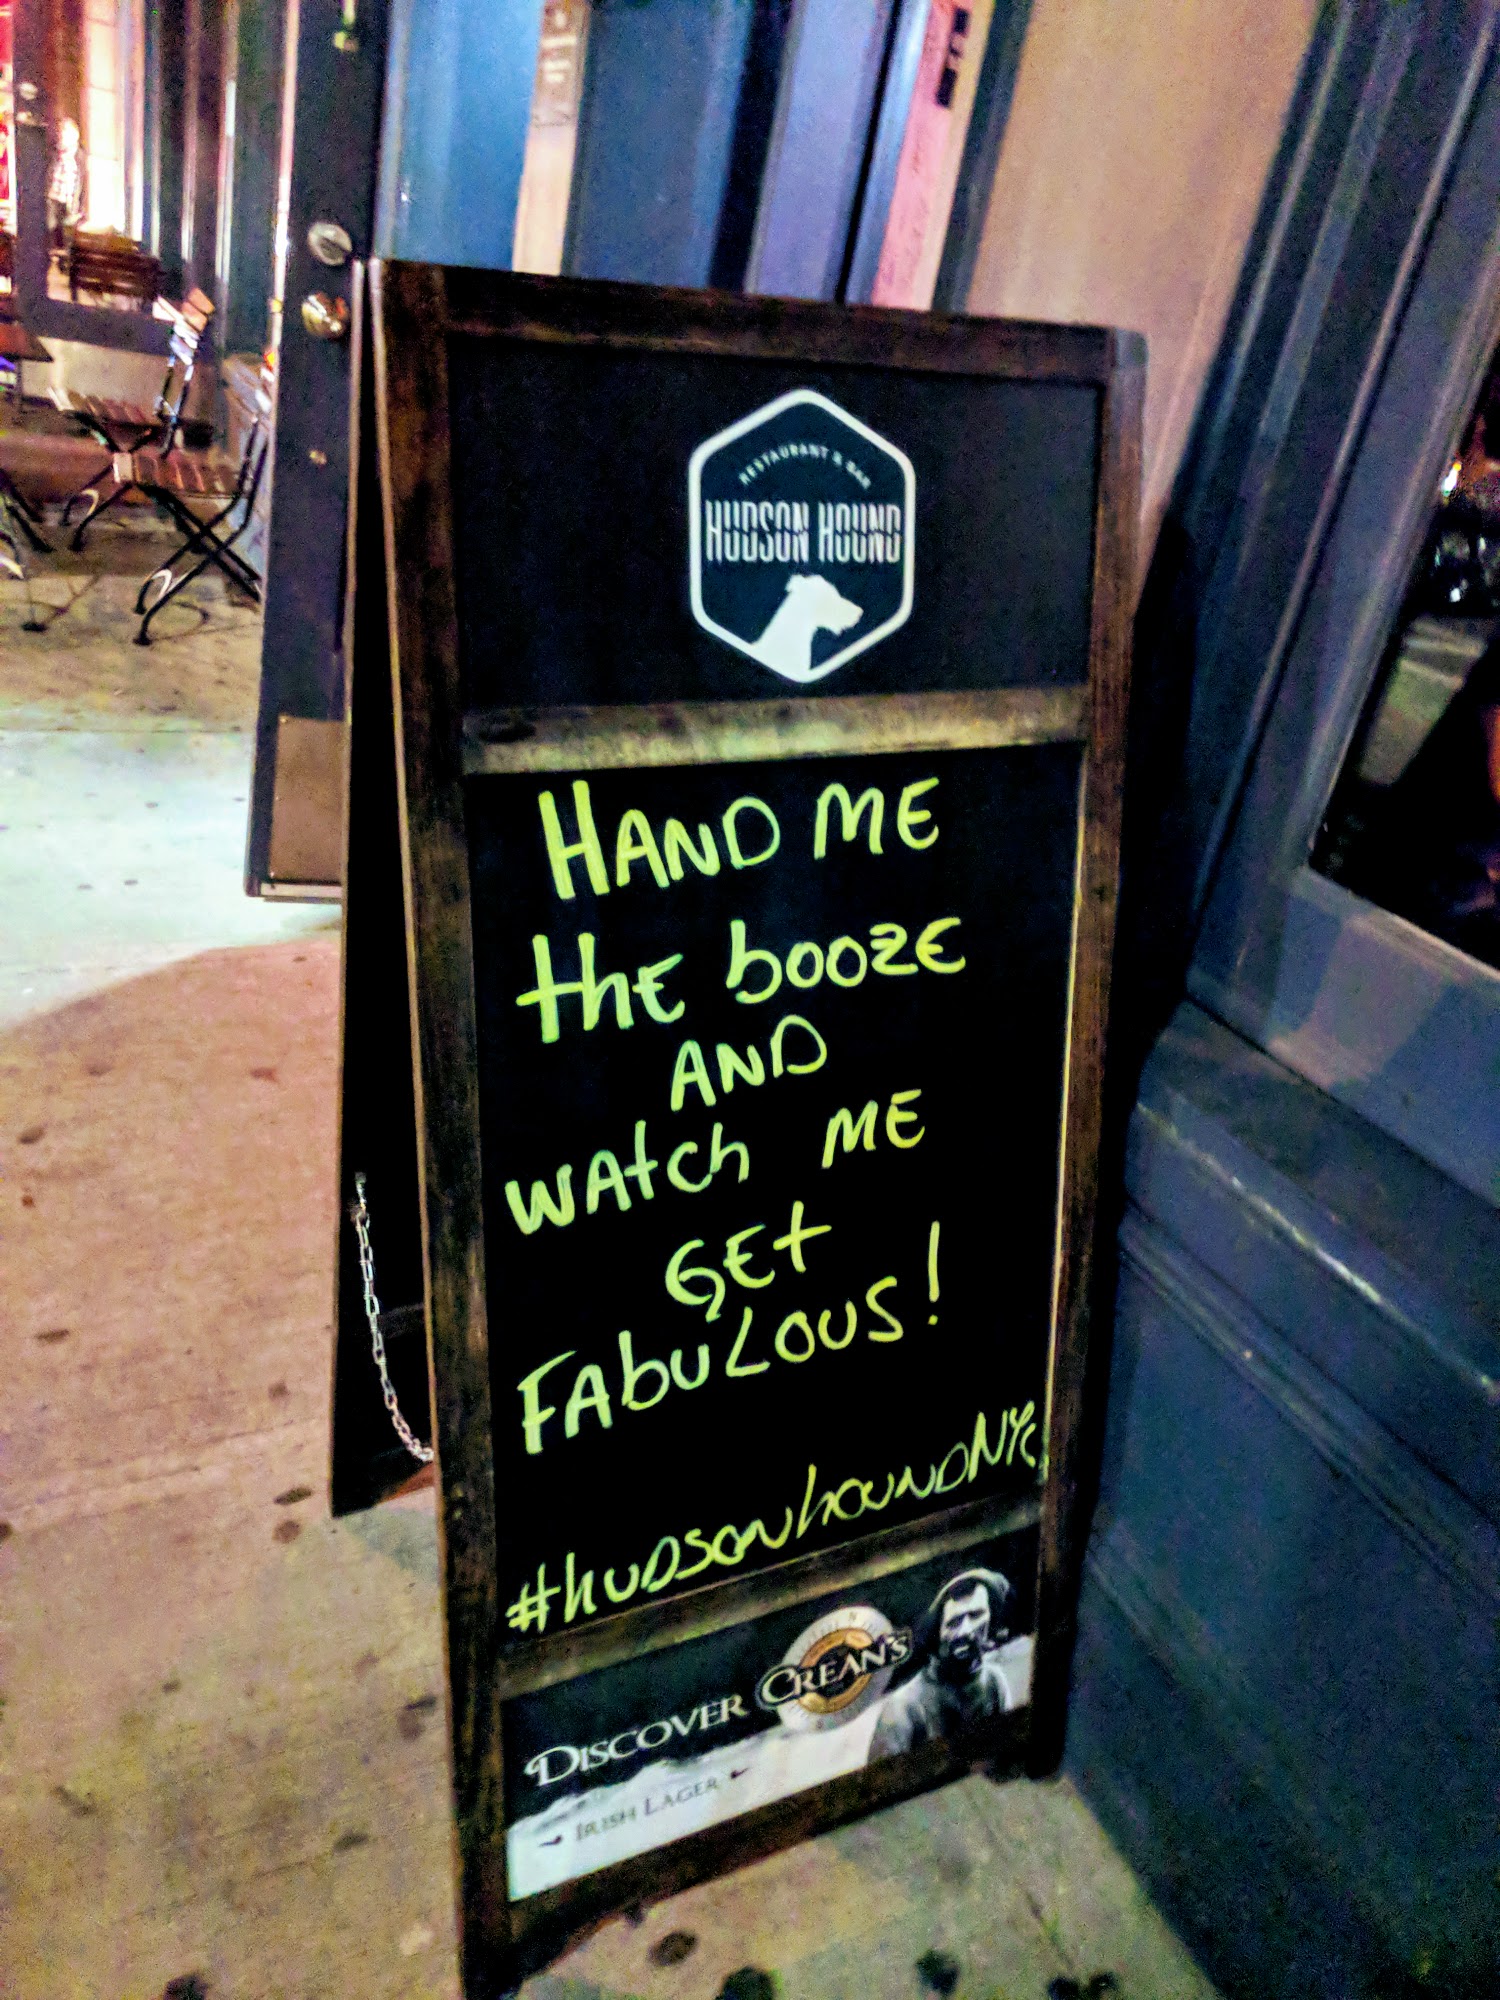 RESTAURANT & BAR
HUDSON HOUND
HAND ME
thE booZE
AND
WAtch ME
GEt
FAbuLOUS!
#hudsonhoundNYc
DISCOVER CREAN'S
IRISH LAGER